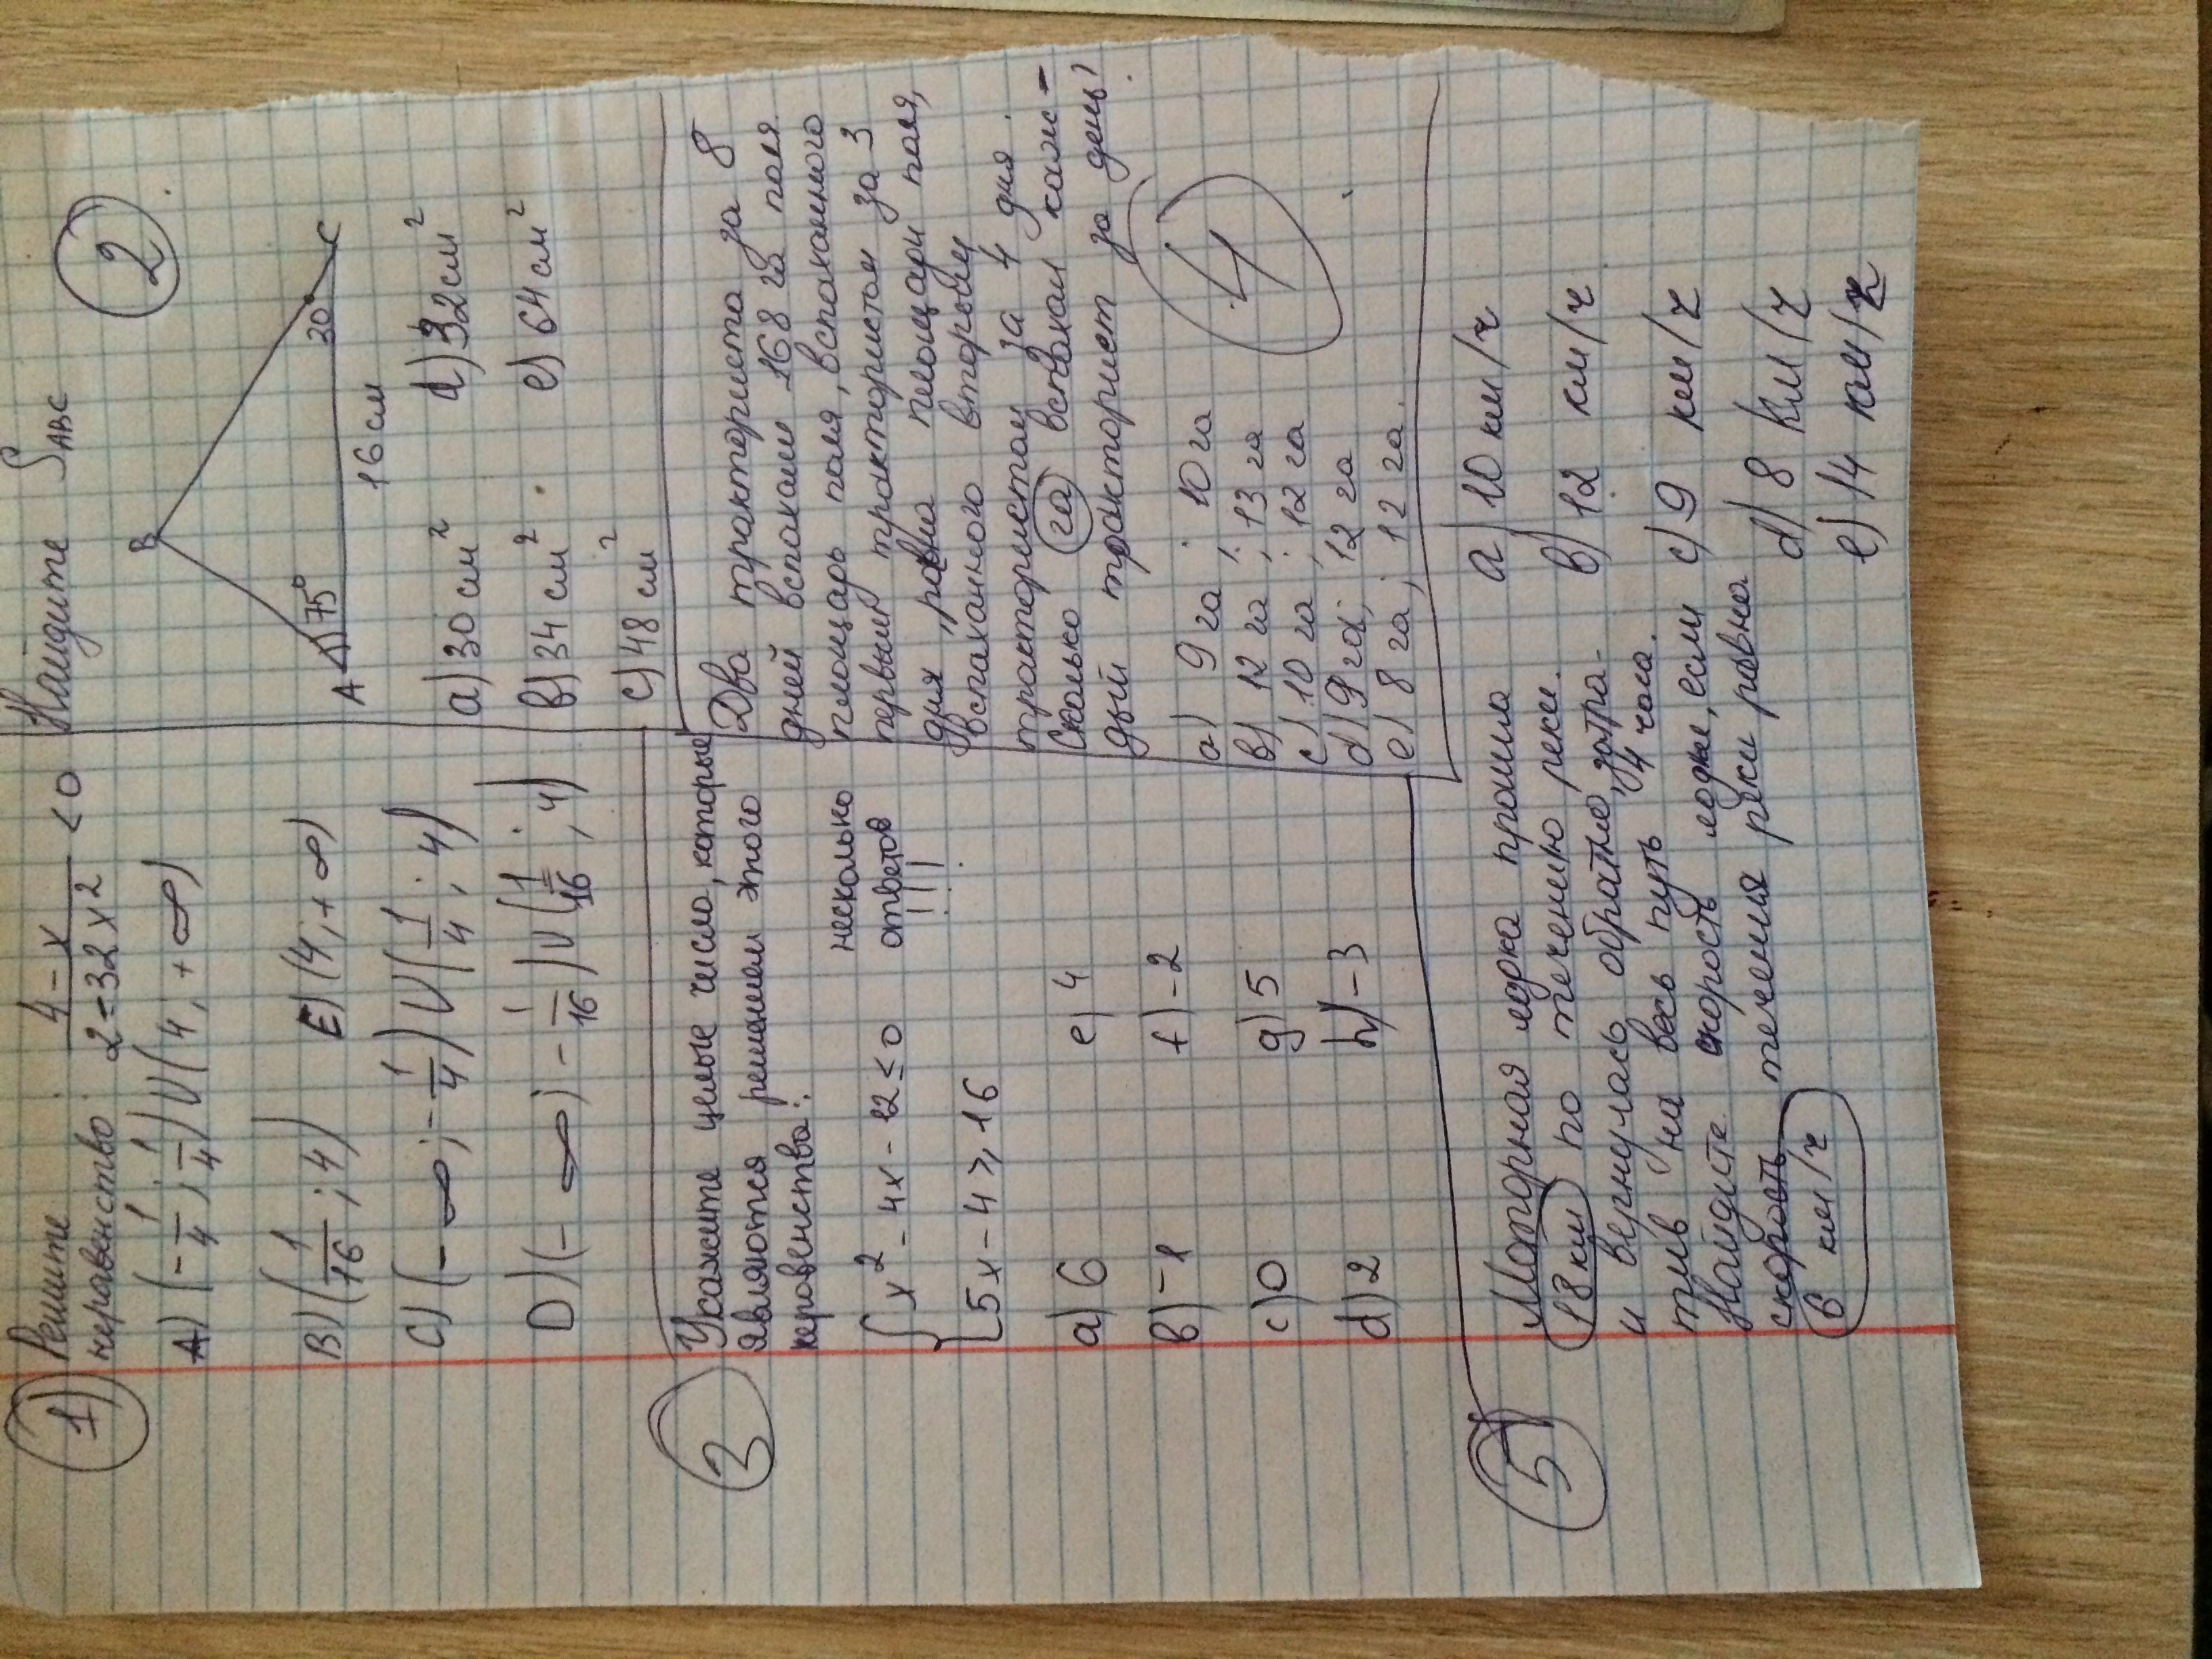 1)
Решите
неравенство:
4-x / 2-32x² < 0
A) (-1/4; 1/4) U (4; +∞)
B) (1/16; 4)
E) (4; +∞)
C) (-∞; -1/4) U (1/4; 4)
D) (-∞; -1/16) U (1/16; 4)
2
Найдите S ABC
B
A
75°
30
C
16 см
a) 30 см²
d) 32 см²
в) 34 см²
e) 64 см²
c) 48 см²
3
Укажите целые числа, которые
являются решением этого
неравенства:
несколько
ответов
!!!
{ x² - 4x - 12 ≤ 0
5x - 4 ≥ 16
a) 6
e) 4
в) -1
f) -2
c) 0
g) 5
d) 2
h) -3
4
Два тракториста за 8
дней вспахали 168 га поля
площадь поля, вспаханного
первым трактористом за 3
дня, равна площади поля,
вспаханного вторым
трактористом за 4 дня.
Сколько га вспахал каж-
дый тракторист за день?
a) 9 га; 10 га
в) 12 га; 13 га
c) 10 га; 12 га
d) 9 га; 12 га
e) 8 га; 12 га.
5
Моторная лодка прошла
18 км по течению реке.
и вернулась обратно, затра-
тив на весь путь 4 часа.
Найдите скорость лодки, если
скорость течения реки равна
6 км/ч
a) 10 км/ч
в) 12 км/ч
c) 9 км/ч
d) 8 км/ч
e) 14 км/ч